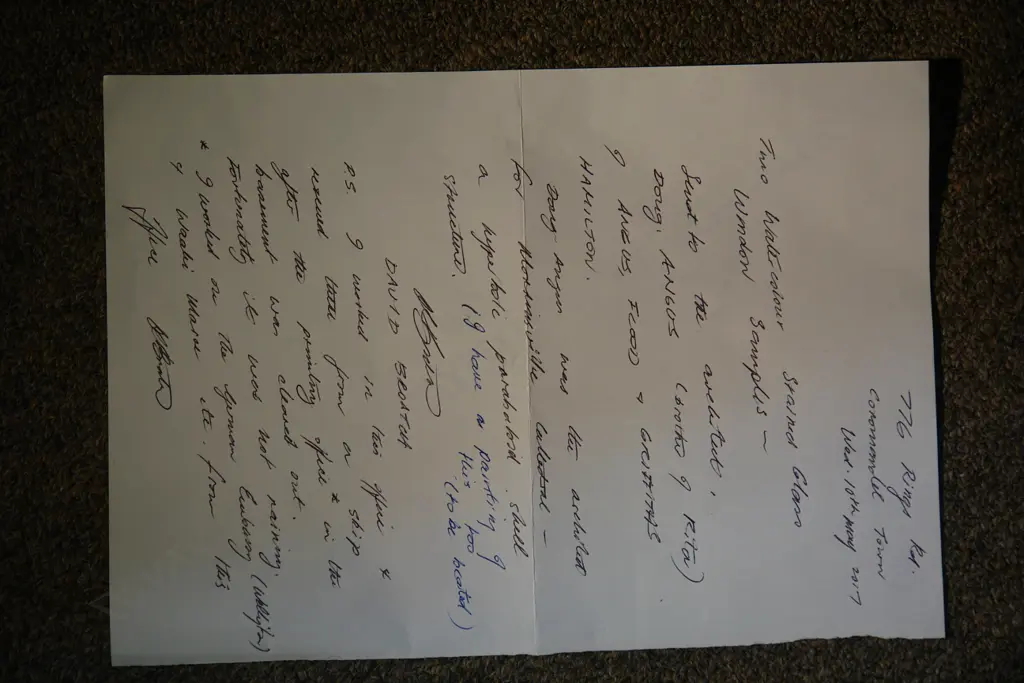 776 Rings Rd.
Coromandel Town
Wed. 10th May 2017
Two Watercolour Stained Glass
Window Samples —
Sent to the architect,
Doug. ANGUS (brother of Rita)
of ANGUS, FLOOD &
HAMILTON.
Doug Angus was the architect
for
a hyperbolic paraboloid shell
structure. (I have a painting of
this too
(to be located)
DAVID
P.S. I worked in this office &
rescued them from a skip
after the printing office & in the
basement was cleared out.
Fortunately it was not raining.
* I worked on the German Embassy (Wellington)
& Wadi Marae etc. from this
office